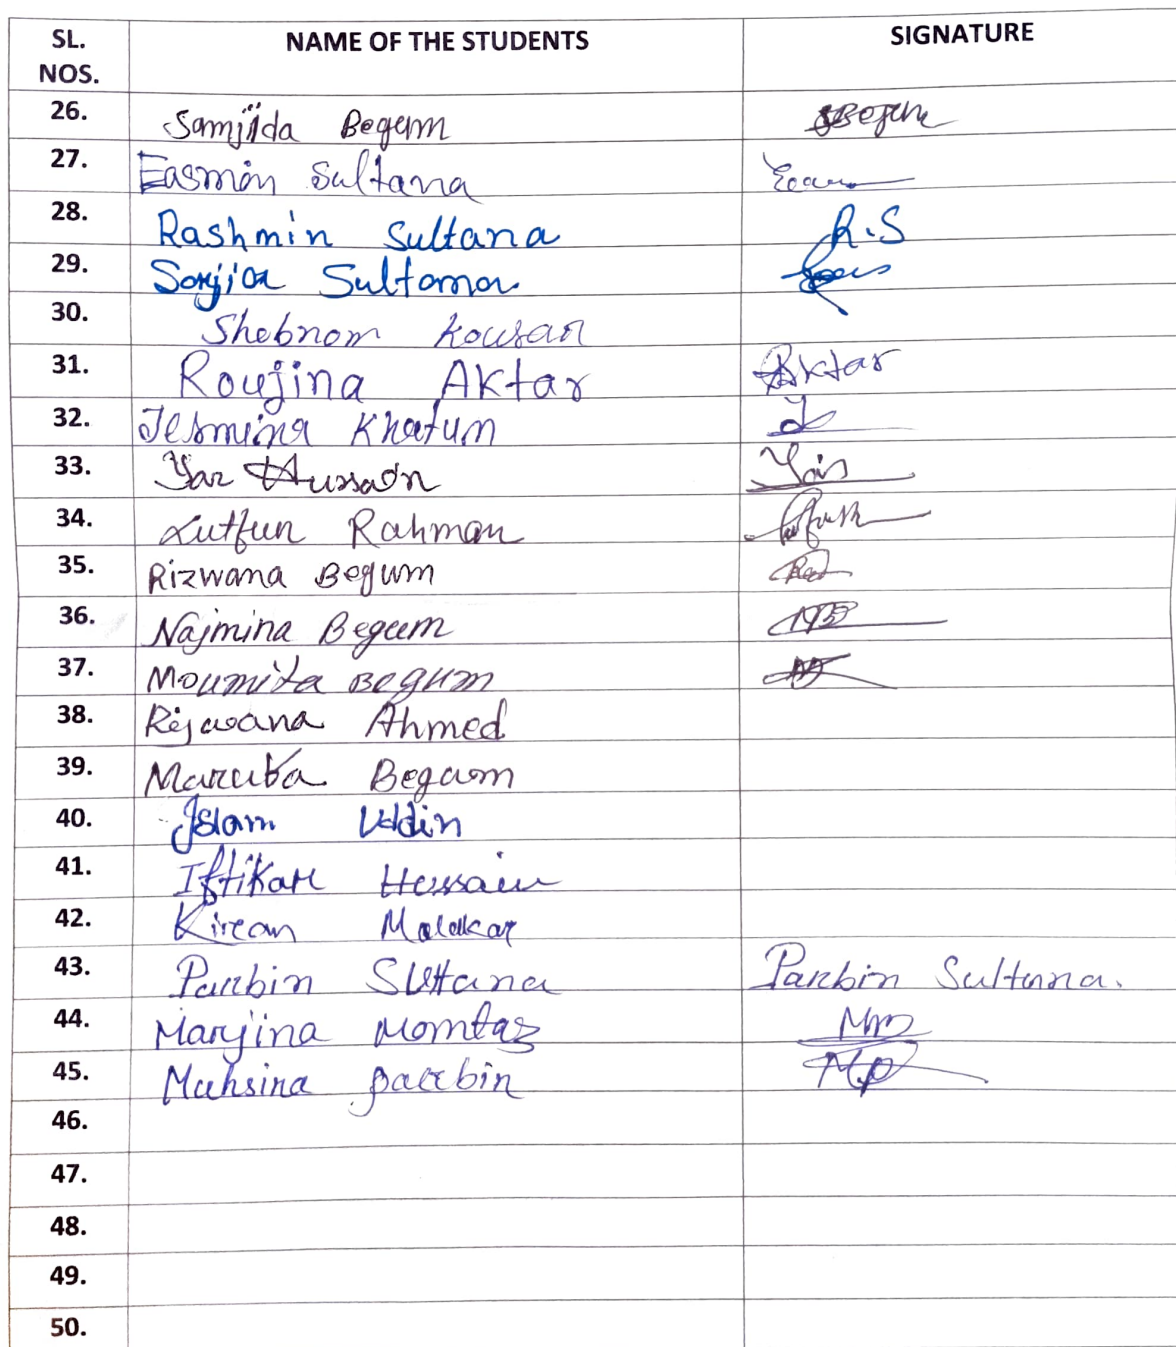 SL. NOS. NAME OF THE STUDENTS SIGNATURE
26. Samjida Begum
27. Easmin Sultana
28. Rashmin Sultana R.S
29. Sonjida Sultana
30. Shebnom Kousar
31. Roujina Aktar Aktar
32. Jesmina Khatun
33. Yar Hussain
34. Lutfun Rahman
35. Rizwana Begum
36. Najmina Begum
37. Moumita Begum
38. Rejwana Ahmed
39. Begum
40. Islam Uddin
41. Iftikar Hussain
42. Kiran Malakar
43. Parbin Sultana Parbin Sultana.
44. Marjina Momtaz
45. Muhsina parbin M.P
46.
47.
48.
49.
50.